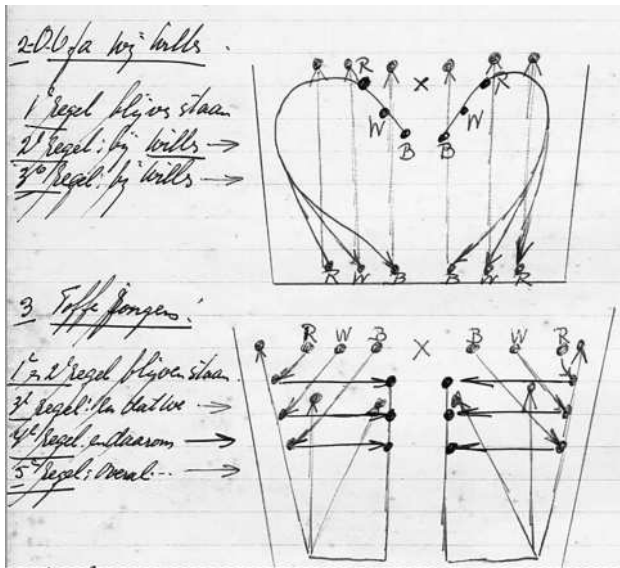 2
1e regel blijven staan
2e regel: bij wills →
3e regel: bij wills →
R × R
W W
B B
R W B B W R
3 Toffe Jongens!
R W B × B W R
1e 2e regel blijven staan.
3e regel: en dat we →
4e regel: en daarom →
5e regel: overal... →